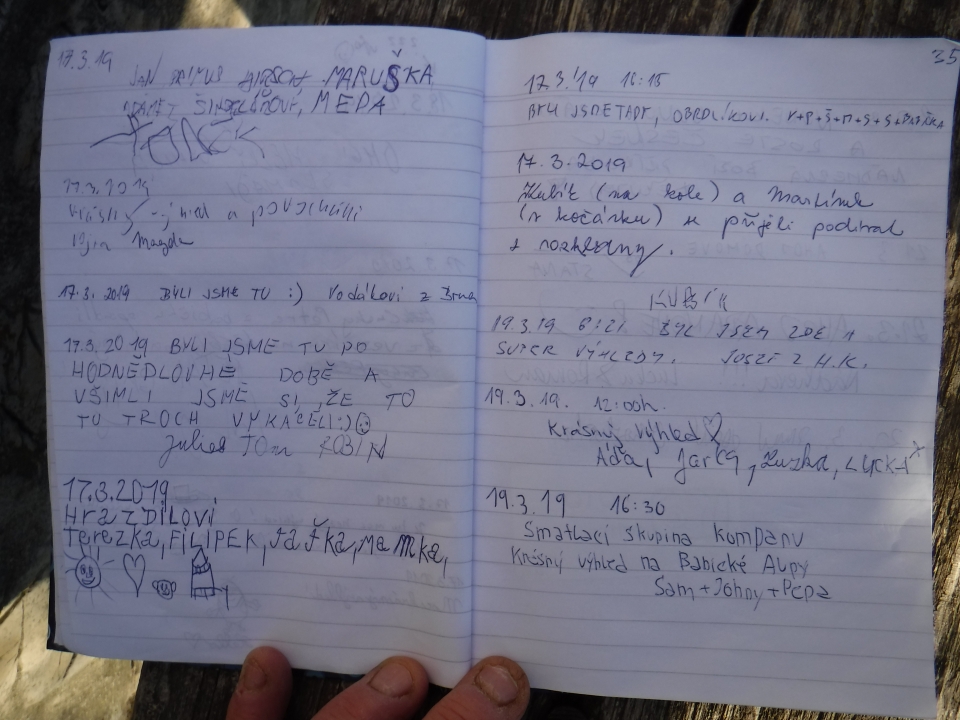 17.3.19
JAN PRIMUS MARUŠKA
MEDA
TOLEK
17.3.2019
a
Magda
17.3.2019 BYLI JSME TU :) Vodákovi z Brna
17.3.2019 BYLI JSME TU PO
HODNĚDLOUHÉ DOBĚ A
VŠIMLI JSME SI, ŽE TO
TU TROCH VYKÁCELI:)
Julies TOm ROBIN
17.3.2019
HrazDÍLOVI
Terezka, FILIPEK, taťka, Mamka,
35
17.3.'19 16:15
BYLI JSME TADY, OBRDLÍKOVI. V+P+Š+M+S+S+
17.3.2019
Kubík (na kole) a Martínek
(v kočárku) se přijeli podívat
z rozhledny.
KUBÍK
19.3.19 BYL JSEM ZDE A
SUPER VÝHLEDY. JOSEF Z H.K.
19.3.19. 12:00h.
Krásný výhled
Áďa, Jarka, Zuzka, LUCK-A
19.3.19 16:30
Smatlací skupina kompanu
Krásný výhled na Babické Alpy
Sam+Johny+Pepa